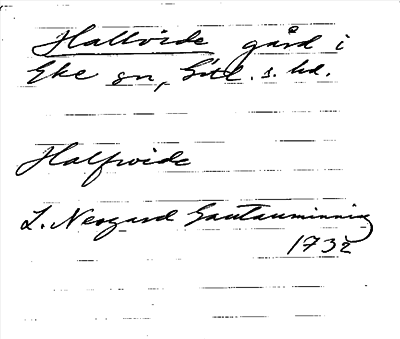 Hallvide gård i
Eke sn, Gtl. s. hd.
Halfvide
L. Neogard Gautauminning
1732